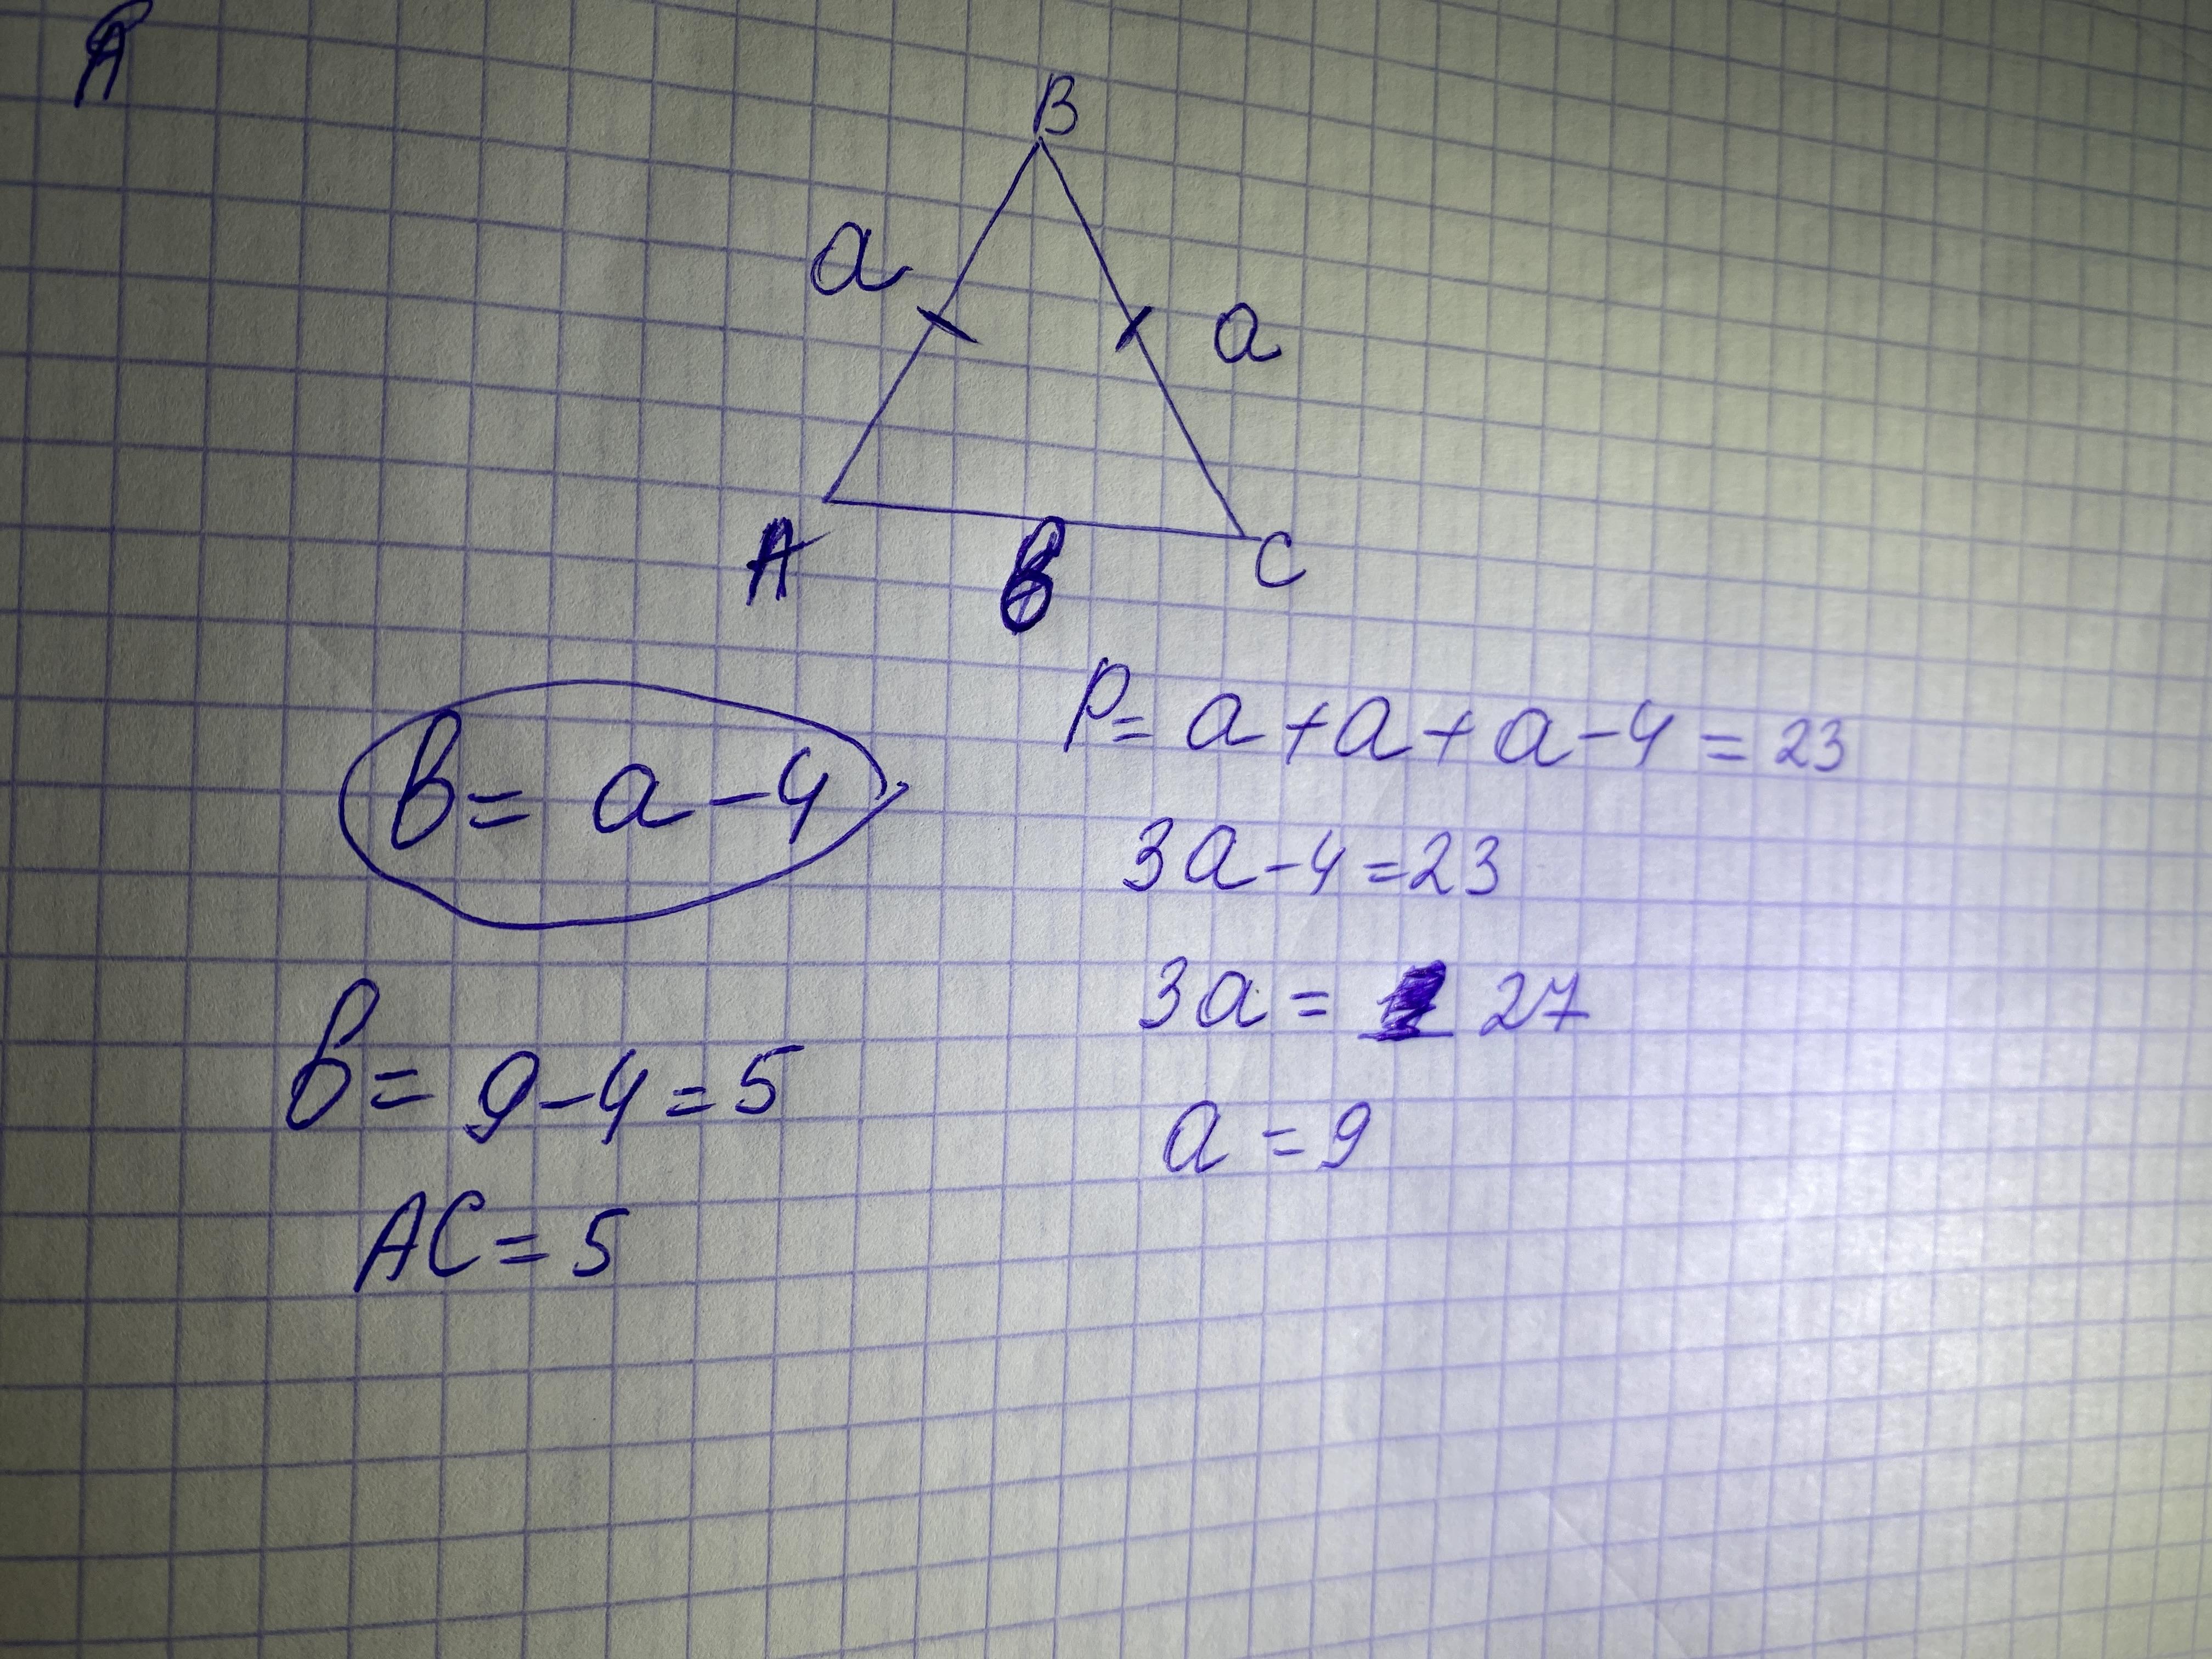 А
B
a
a
A
в
C
в = a - 4
P = a + a + a - 4 = 23
3a - 4 = 23
3a = 27
a = 9
в = 9 - 4 = 5
AC = 5